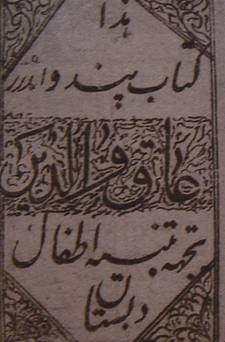 هذا
کتاب پند و اندرز
عاق والدین
بجهة تنبیه اطفال
دبستان